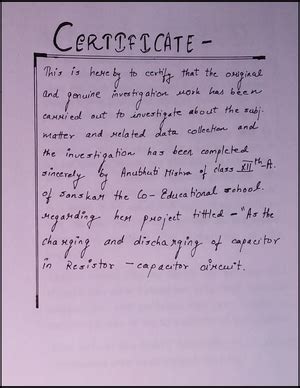 CERTIFICATE -
This is hereby to certify that the original
and genuine investigation work has been
carried out to investigate about the subj-
matter and related data collection and
the investigation has been completed
sincerely by Anubhuti Mishra of class XIIth-A.
of Sanskar the Co-Educational school.
regarding her project tittled - "As the
charging and discharging of capacitor
in Resistor - capacitor circuit.